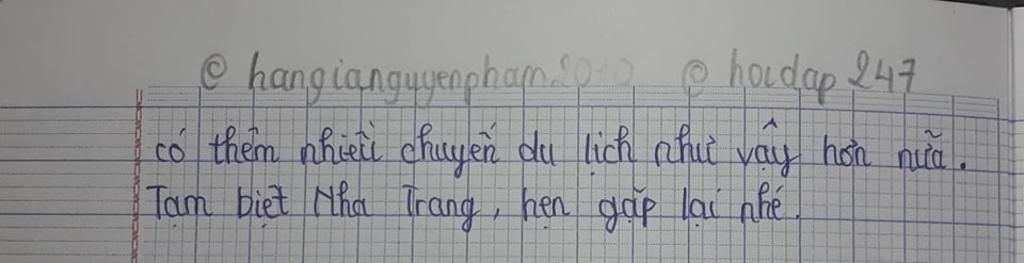 @ hangianguyenpham2010 @ hoidap 247
có thêm nhiều chuyến du lịch như vậy hơn nữa.
Tạm biệt Nha Trang, hẹn gặp lại nhé.